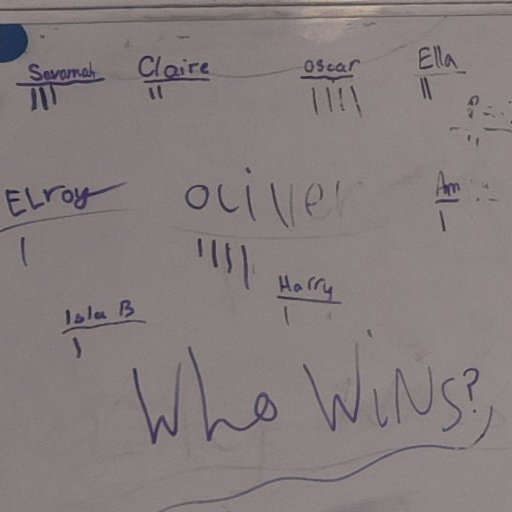 Savannah Claire Oscar Ella
ELroy Oliver Am
Isla B Harry
Who WiNS?